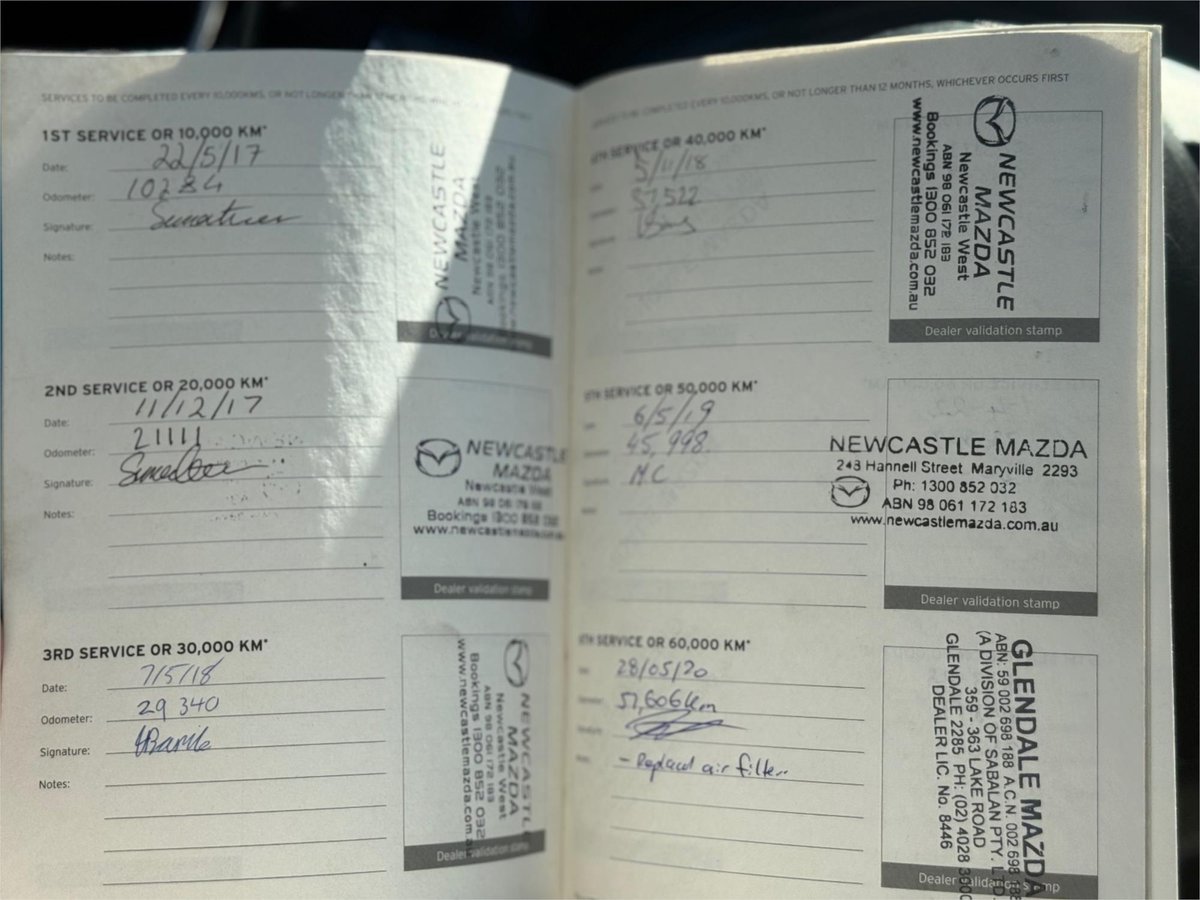 SERVICES TO BE COMPLETED EVERY 10,000KMS, OR NOT LONGER THAN 12 MONTHS, WHICHEVER
1ST SERVICE OR 10,000 KM*
Date: 22/5/17
Odometer: 10284
Signature:
Notes:
NEWCASTLE
MAZDA
Newcastle West
Dealer validation stamp
2ND SERVICE OR 20,000 KM*
Date: 11/12/17
Odometer: 21111
Signature:
Notes:
NEWCASTLE
MAZDA
Newcastle West
Bookings 1300 852 032
www.newcastlemazda.com.au
Dealer validation stamp
3RD SERVICE OR 30,000 KM*
Date: 7/5/18
Odometer: 29 340
Signature:
Notes:
NEWCASTLE
MAZDA
Newcastle West
ABN 98 061 172 183
Bookings 1300 852 032
www.newcastlemazda.com.a
Dealer validation stamp
COMPLETED EVERY 10,000KMS, OR NOT LONGER THAN 12 MONTHS, WHICHEVER OCCURS FIRST
SERVICE OR 40,000 KM*
5/11/18
37,522
NEWCASTLE
MAZDA
Newcastle West
ABN 98 061 172 183
Bookings 1300 852 032
www.newcastlemazda.com.au
Dealer validation stamp
SERVICE OR 50,000 KM*
6/5/19
45,998.
MC
NEWCASTLE MAZDA
243 Hannell Street Maryville 2293
Ph: 1300 852 032
ABN 98 061 172 183
www.newcastlemazda.com.au
Dealer validation stamp
SERVICE OR 60,000 KM*
28/05/20
57,606km
- Replaced air filter
GLENDALE MAZDA
ABN: 59 002 698 188 A.C.N. 002 698 188
(A DIVISION OF SABALAN PTY. LTD.
359 - 363 LAKE ROAD
GLENDALE 2285 PH: (02) 4028 3900
DEALER LIC. No. 8446
Dealer validation stamp